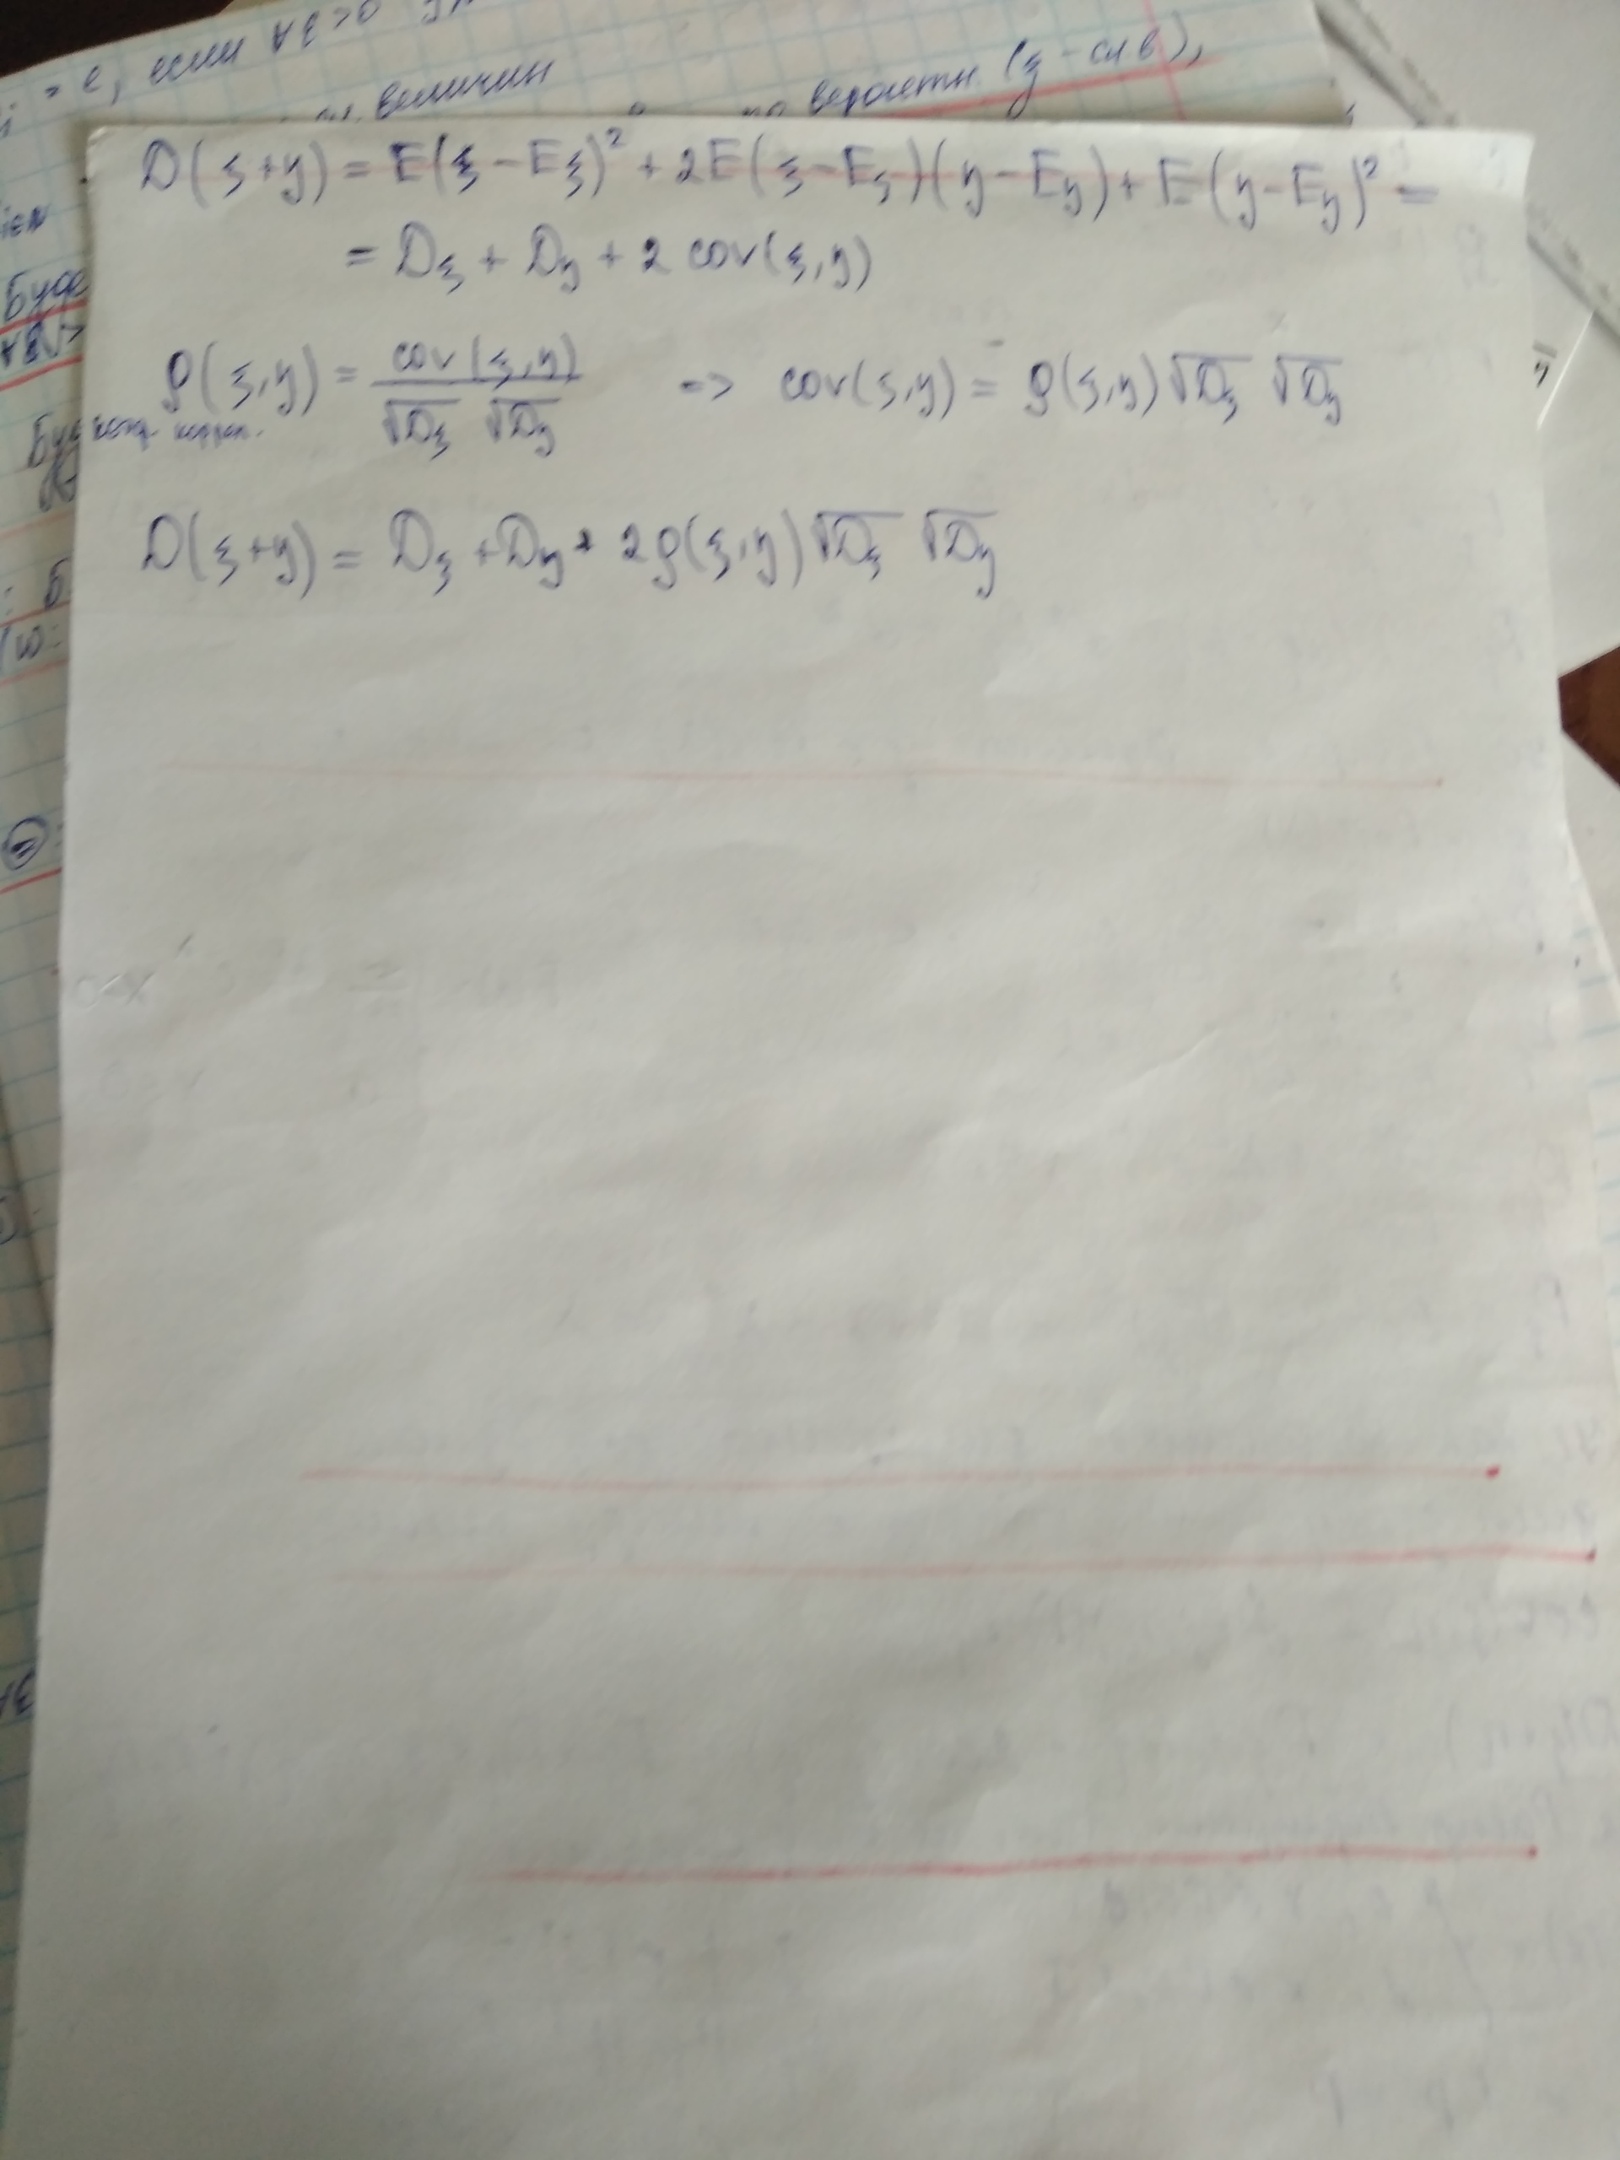 = e, если ∀ε>0
величин
по вероятн. (ξ - сл.в),
D(ξ+η) = E(ξ-Eξ)² + 2E(ξ-Eξ)(η-Eη) + E(η-Eη)² =
= Dξ + Dη + 2 cov(ξ,η)
ρ(ξ,η) = cov(ξ,η) / √Dξ √Dη => cov(ξ,η) = ρ(ξ,η)√Dξ √Dη
коэф. коррел.
D(ξ+η) = Dξ + Dη + 2ρ(ξ,η)√Dξ √Dη